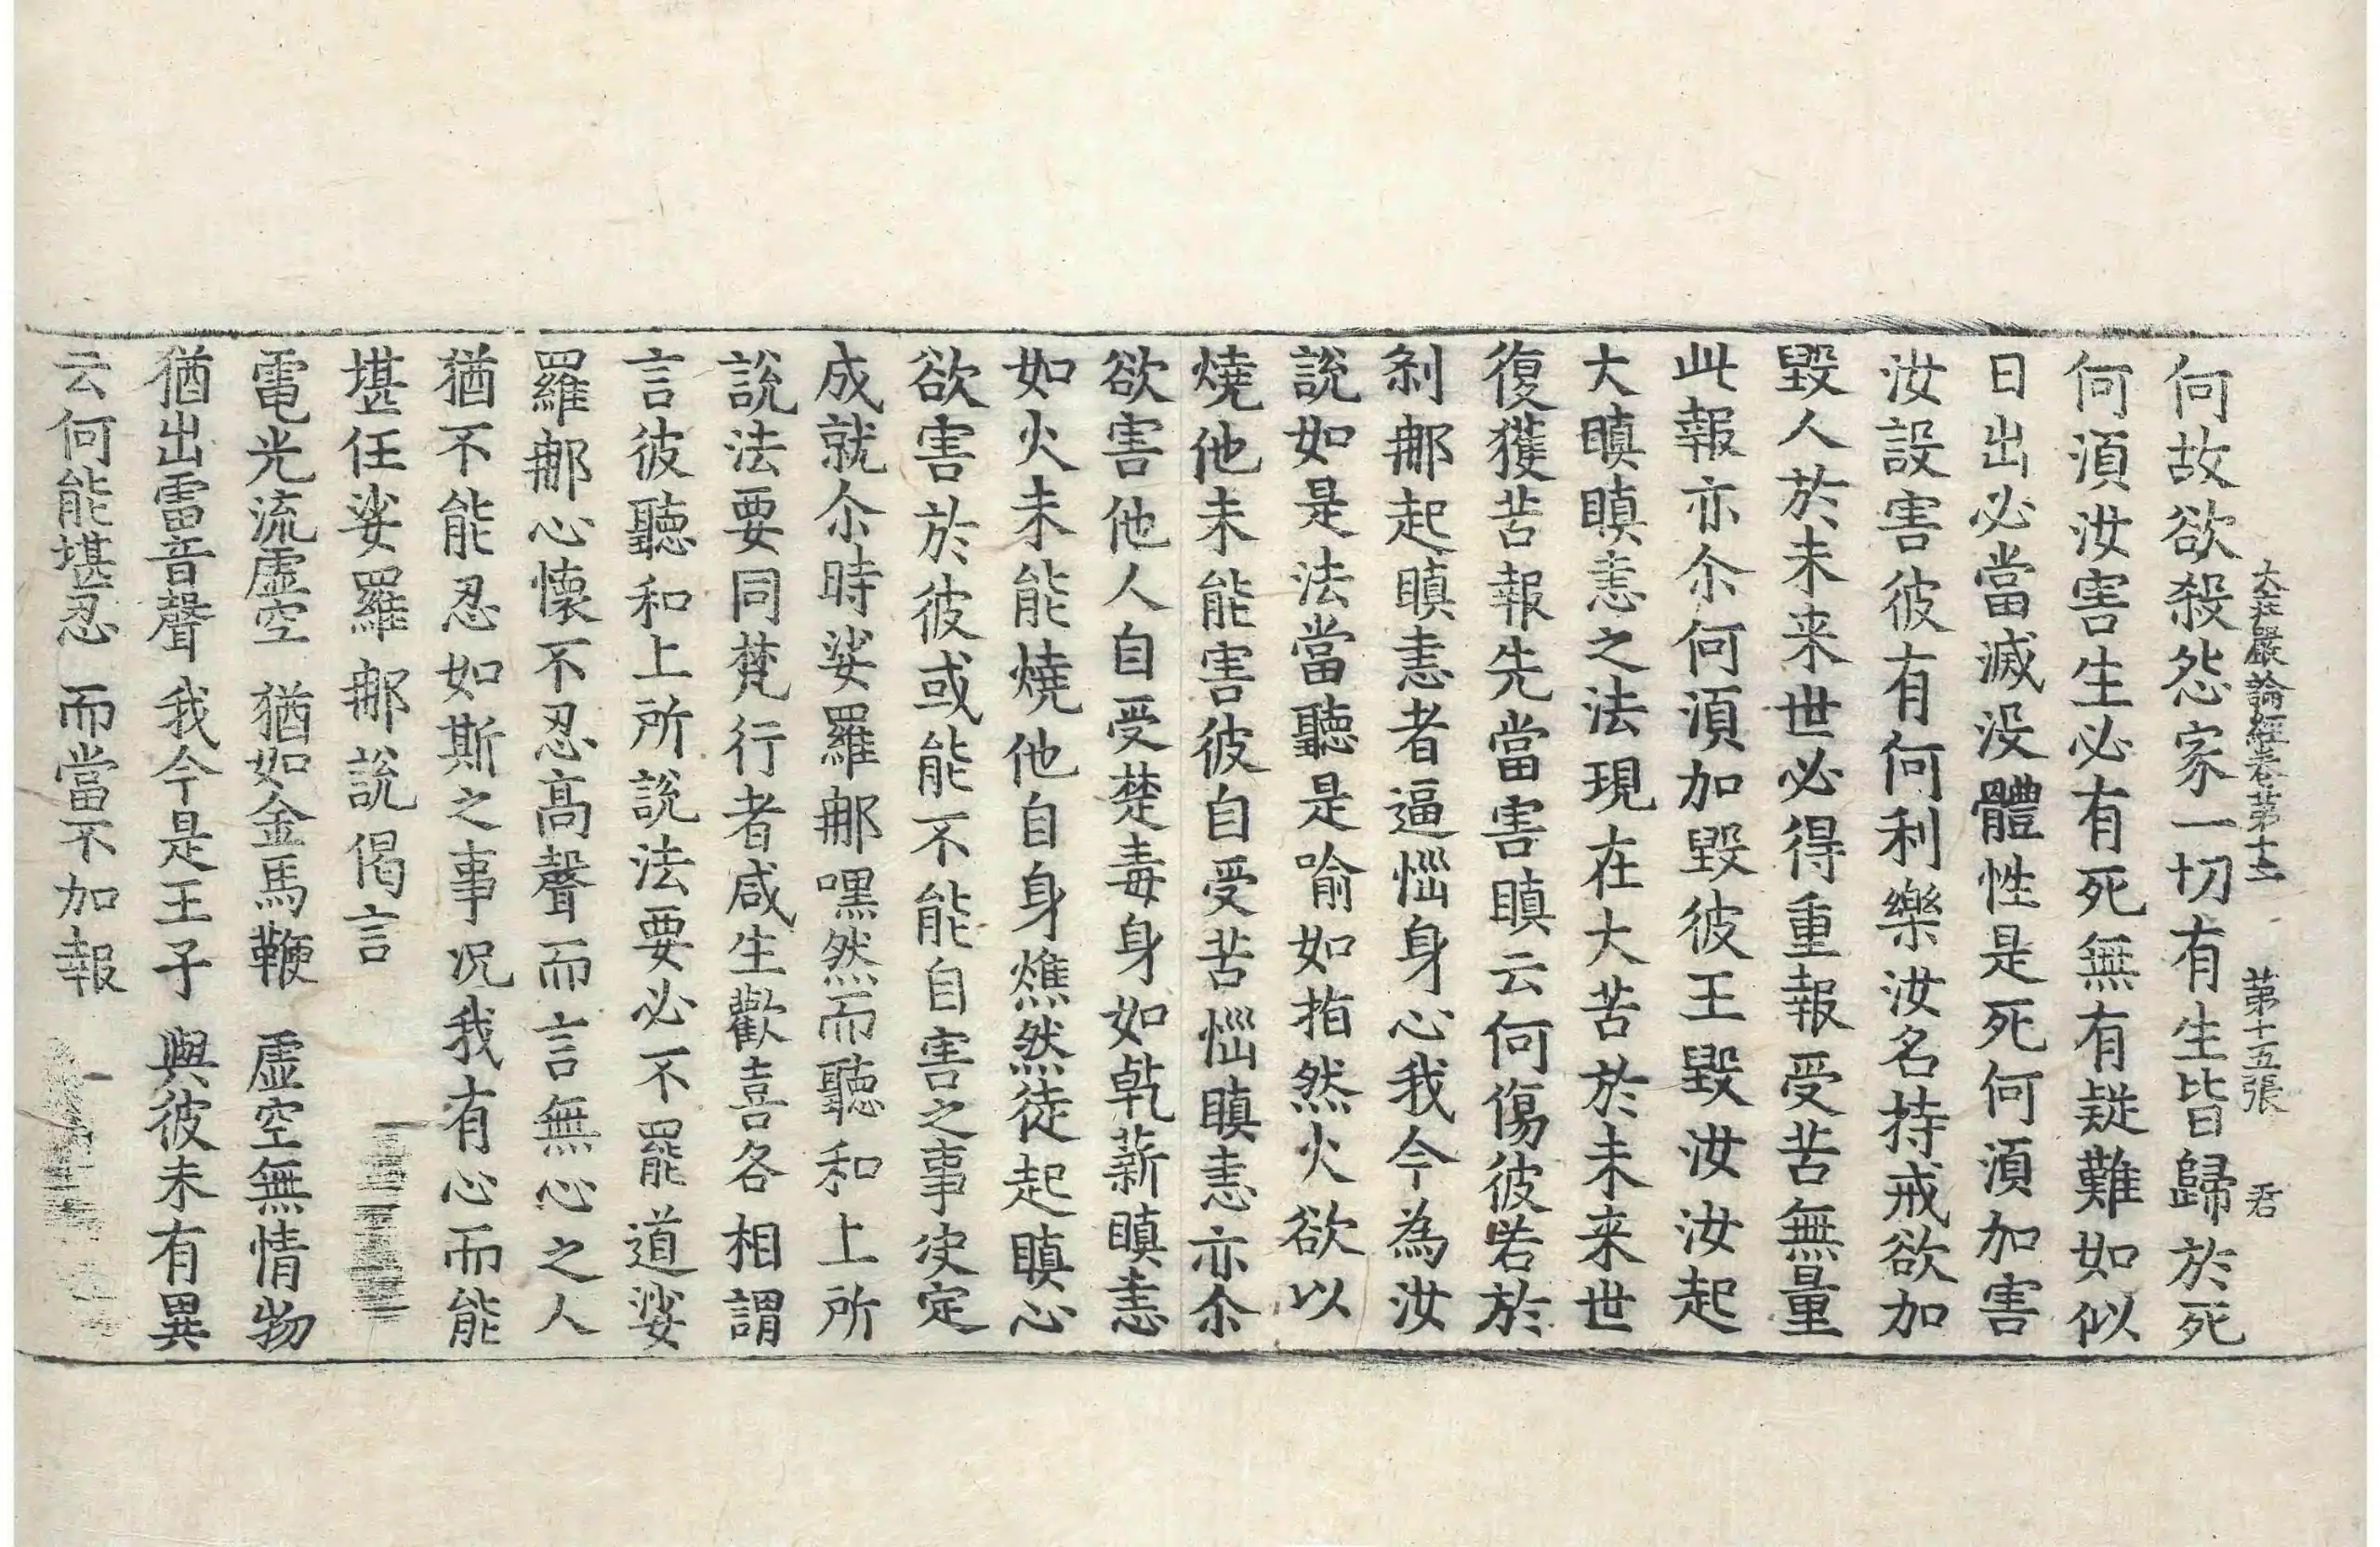 大莊嚴論經卷第十二 第十五張 君
何故欲殺怨家一切有生皆歸於死
何湏汝害生必有死無有疑難如似
日出必當滅没體性是死何湏加害
汝設害彼有何利樂汝名持戒欲加
毀人於未来世必得重報受苦無量
此報亦尒何湏加毀彼王毀汝汝起
大瞋瞋恚之法現在大苦於未来世
復獲苦報先當害瞋云何傷彼若於
刹那起瞋恚者逼惱身心我今為汝
說如是法當聽是喻如指然火欲以
燒他未能害彼自受苦惱瞋恚亦尒
欲害他人自受楚毒身如乹薪瞋恚
如火未能燒他自身燋然徒起瞋心
欲害於彼或能不能自害之事决定
成就尒時娑羅那嘿然而聽和上所
說法要同梵行者咸生歡喜各相謂
言彼聽和上所說法要必不罷道娑
羅那心懷不忍高聲而言無心之人
猶不能忍如斯之事况我有心而能
堪任娑羅那說偈言
電光流虛空 猶如金馬鞭 虛空無情物
猶出雷音聲 我今是王子 與彼未有異
云何能堪忍 而當不加報